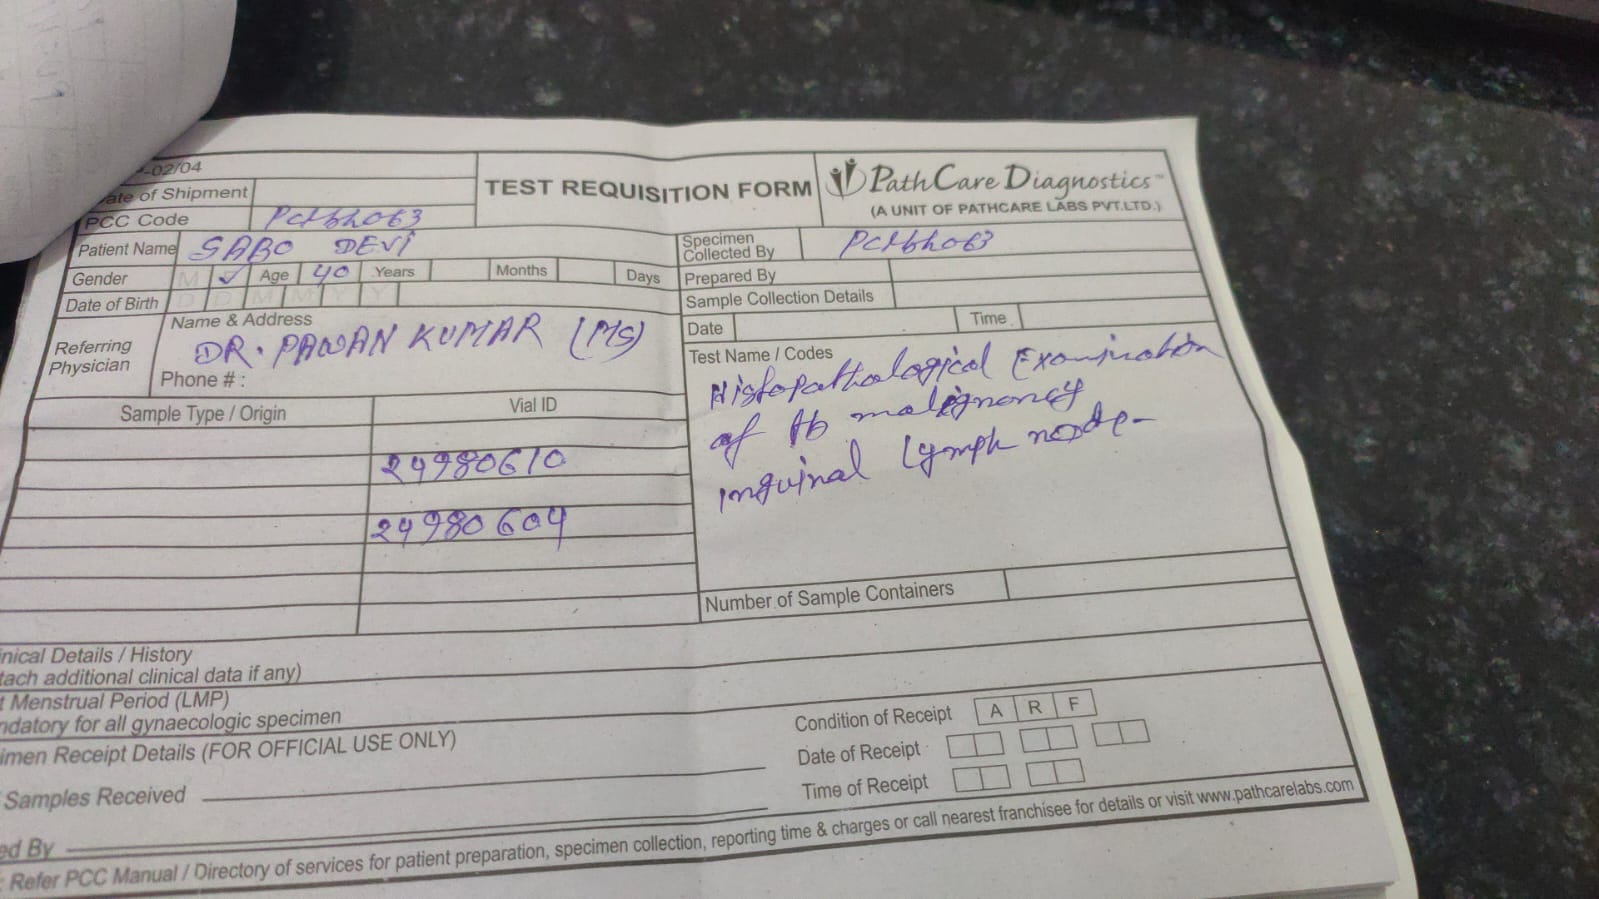 -02/04
ate of Shipment
TEST REQUISITION FORM
PathCare Diagnostics™
(A UNIT OF PATHCARE LABS PVT.LTD.)
PCC Code
Patient Name SABO DEVI
Specimen Collected By
Gender M ✓ Age 40 Years Months Days
Prepared By
Date of Birth D D M M Y Y
Sample Collection Details
Date Time
Referring Physician
Name & Address
DR. PAWAN KUMAR (MS)
Phone # :
Test Name / Codes
Histopathological Examination
of malignancy
inguinal Lymph node-
Sample Type / Origin Vial ID
24980610
24980604
Number of Sample Containers
inical Details / History
tach additional clinical data if any)
t Menstrual Period (LMP)
ndatory for all gynaecologic specimen
imen Receipt Details (FOR OFFICIAL USE ONLY)
Condition of Receipt A R F
Date of Receipt
Time of Receipt
Samples Received
ed By
: Refer PCC Manual / Directory of services for patient preparation, specimen collection, reporting time & charges or call nearest franchisee for details or visit www.pathcarelabs.com